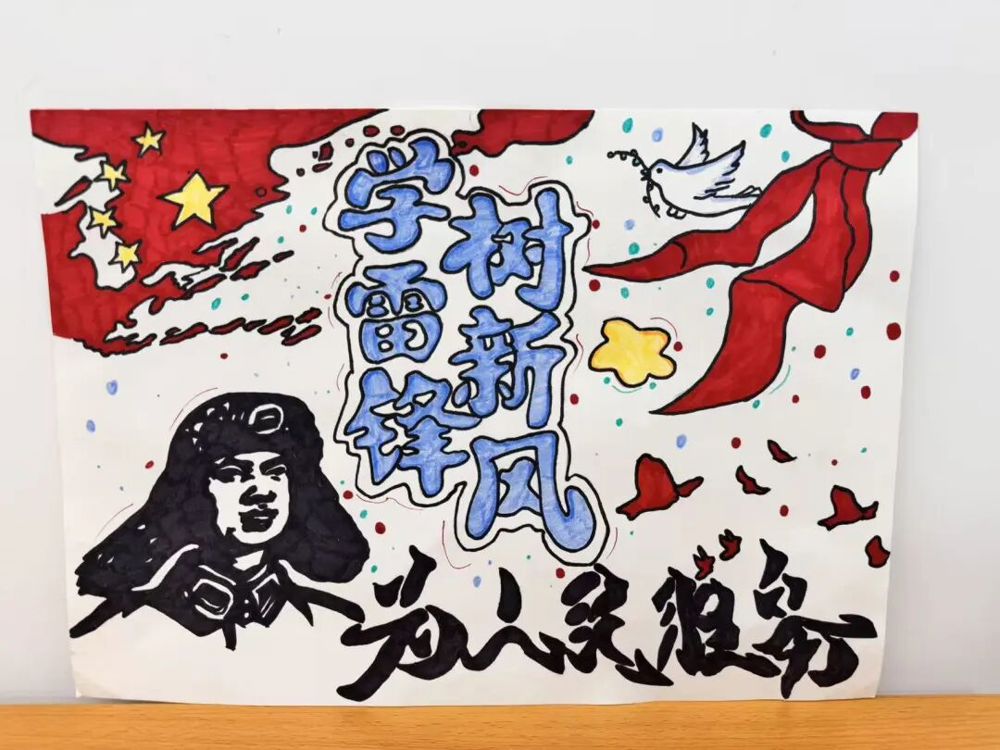 学雷锋
树新风
为人民服务